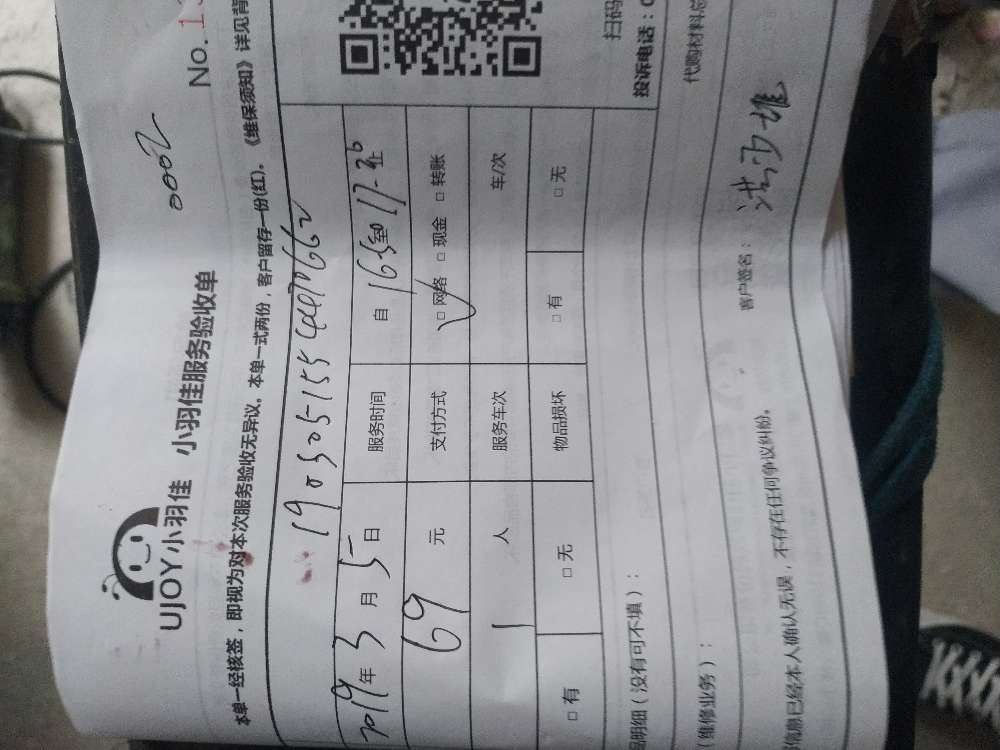 No. 1
0002
UJOY小羽佳 小羽佳服务验收单
本单一经核签，即视为对本次服务验收无异议。本单一式两份，客户留存一份(红)。《维保须知》详见背
2019年3月5日 服务时间 自 165至17-36止
69元 支付方式 □网络 □现金 □转账
1人 服务车次 车/次
□有 □无 物品损坏 □有 □无
扫码
品明细（没有可不填）： 投诉电话：0
（维修业务）： 代购材料总
信息已经本人确认无误，不存在任何争议纠纷。 客户签名：